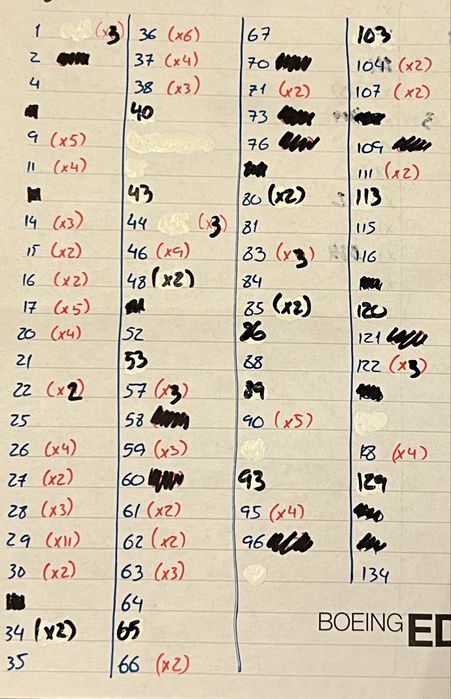 1 (x3)
2
4
9 (x5)
11 (x4)
14 (x3)
15 (x2)
16 (x2)
17 (x5)
20 (x4)
21
22 (x2)
25
26 (x4)
27 (x2)
28 (x3)
29 (x11)
30 (x2)
34 (x2)
35
36 (x6)
37 (x4)
38 (x3)
40
43
44 (x3)
46 (x9)
48 (x2)
52
53
57 (x3)
58
59 (x3)
60
61 (x2)
62 (x2)
63 (x3)
64
65
66 (x2)
67
70
71 (x2)
73
76
80 (x2)
81
83 (x3)
84
85 (x2)
86
88
89
90 (x5)
93
95 (x4)
96
103
104 (x2)
107 (x2)
109
111 (x2)
113
115
116
120
121
122 (x3)
(x4)
129
134
BOEING ED